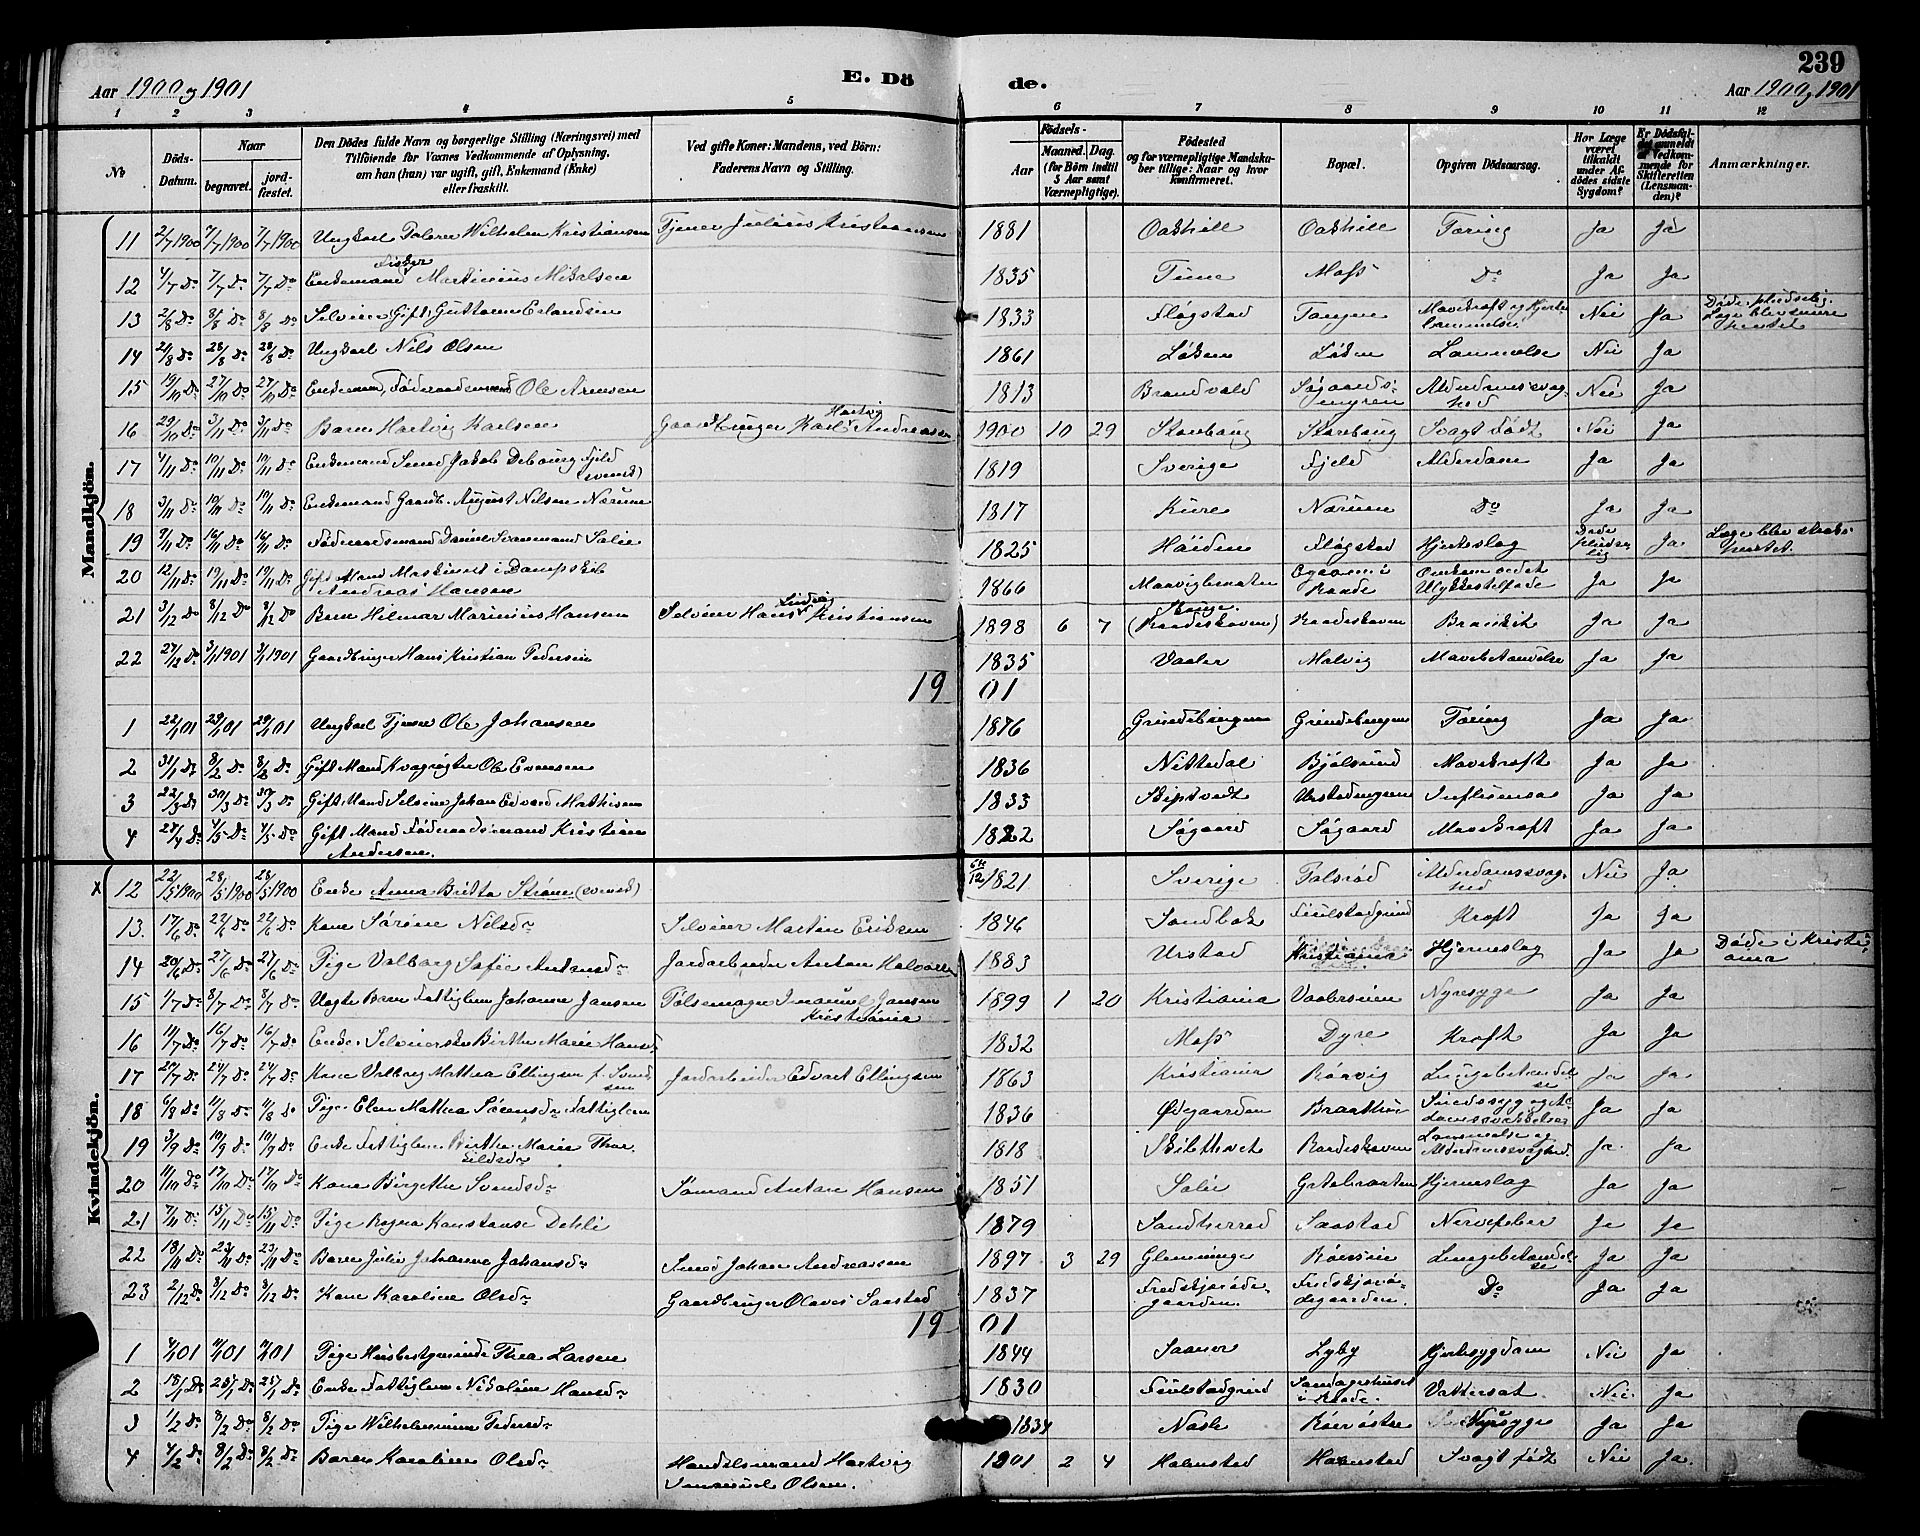 239
Aar 1900 og 1901
E. Dö
de.
Aar 1900 og 1901
1 2 3 4 5 6 7 8 9 10 11 12
No
Döds-Datum.
Naar
begravet.
jordfæstet.
Den Dödes fulde Navn og borgerlige Stilling (Næringsvei) med
Tilföiende for Voxnes Vedkommende af Oplysning,
om han (hun) var ugift, gift, Enkemand (Enke)
eller fraskilt.
Ved gifte Koner: Mandens, ved Börn:
Faderens Navn og Stilling.
Födsels-
Aar
Maaned. Dag.
(for Börn indtil
5 Aar samt
Værnepligtige).
Födested
og for værnepligtige Mandskaber tillige: Naar og hvor
konfirmeret.
Bopæl.
Opgiven Dödsaarsag.
Har Læge
været
tilkaldt
under Afdödes sidste
Sygdom?
Er Dödsfaldet anmeldt
af Vedkommende for
Skifteretten
(Lensmanden)?
Anmærkninger.
Mandkjön.
11 2/7 1900 7/7 1900 7/7 1900 Ungkarl Wilhelm Kristiansen Tjener Julius Kristiansen 1881 Oakhill Oakhill Tæring Ja Ja
12 4/7 Do 7/7 Do 7/7 Do Enkemand Fisker Martinius Mikalsen 1835 Tune Moss Do Ja Ja
13 2/8 Do 8/8 Do 8/8 Do Selveier Gift Guttorm Erlandsen 1833 Fløgstad Tangen Mavekræft og Hjertelammelse Nei Ja Døde pludselig. Læge blev hentet
14 21/8 Do 28/8 Do 28/8 Do Ungkarl Nils Olsen 1861 Løken Løken Lammelse Nei Ja
15 19/10 Do 27/10 Do 27/10 Do Enkemand, Føderaadsmand Ole Arnesen 1813 Brandvold Søgaardsmyren Alderdomssvaghed Nei Ja
16 29/10 Do 3/11 Do 3/11 Do Barn Hartvig Karlsen Gaardbruger Karl Hartvig Andreasen 1900 10 29 Skovbaug Skovbaug Svagt Født Nei Ja
17 4/11 Do 10/11 Do 10/11 Do Enkemand Smed Jakob Debourg Fjeld (svensk) 1819 Sverige Fjeld Alderdom Ja Ja
18 3/11 Do 10/11 Do 10/11 Do Enkemand Gaardb. August Nilsen Nærum 1817 Kure Nærum Do Ja Ja
19 9/11 Do 16/11 Do 16/11 Do Føderaadsmand Daniel Svansmand Solie 1825 Høiden Fløgstad Hjerteslag Døde pludselig Ja Læge blev straks hentet.
20 12/11 Do 19/11 Do 19/11 Do Gift Mand Maskinist i Dampskib Andreas Hansen 1866 Raade Omkom vedet Ulykkestilfælde Ja Ja
21 3/12 Do 8/12 Do 8/12 Do Barn Hilmar Marinius Hansen Selveier Hans Ludvig Kristiansen 1898 6 7 Stange. (Raadeskoven) Raadeskoven Bronkit Ja Ja
22 27/12 Do 3/1 1901 3/1 1901 Gaardbruger Hans Kristian Pedersen 1835 Vaaler Molvig Mavebetændelse Ja Ja
1901
1 22/1 01 29/1 01 29/1 01 Ungkarl Tjener Ole Johansen 1876 Grindebingen Grindebingen Tæring Ja Ja
2 31/1 Do 8/2 Do 8/2 Do Gift Mand Kvægrygter Ole Evensen 1836 Nittedal Bjølsund Mavekræft Ja Ja
3 22/3 Do 30/3 Do 30/3 Do Gift Mand Selveier Johan Edvard Mathisen 1833 Skiptvedt Urstadengen Influensa Ja Ja
4 27/4 Do 4/5 Do 4/5 Do Gift Mand Føderaadsmand Kristian Andersen. 1822 Søgaard Søgaard Mavekræft Ja Ja
Kvindekjön.
x 12 22/5 1900 28/5 1900 28/5 1900 Enke Anna Britta Strøm (svensk) 1821 Sverige Talsrød Alderdomssvaghed Nei Ja
13. 17/6 Do 22/6 Do 22/6 Do Kone Sørine Nilsdr Selveier Martin Eriksen 1846 Sandbak Fiulstadgrind Kræft Ja Ja
14 20/6 Do 27/6 Do 27/6 Do Pige Valborg Sofie Antonsdr Jordarbeider Anton Halvorsen 1883 Urstad Kristiania Hjerneslag Ja Ja Døde i Kristiania
15 1/7 Do 8/7 Do 8/7 Do Uægte Barn Fattiglem Johanne Jansen Pølsemager Imanuel Jansen Kristiania 1899 1 20 Kristiania Vaalerveien Nyresyge Ja Ja
16 11/7 Do 16/7 Do 16/7 Do Enke Selveierske Birthe Marie Hansdr 1832 Moss Dyre Kræft Ja Ja
17 20/7 Do 24/7 Do 24/7 Do Kone Valborg Mathea Ellingsen f. Svendsen Jordarbeider Edvart Ellingsen 1863 Kristiania Rørvig Lungebetændelse Ja Ja
18 6/8 Do 11/8 Do 11/8 Do Pige Elen Mathea Sørensdr Fattiglem 1836 Ødegaarden Braathue Ja Ja
19 3/9 Do 10/9 Do 10/9 Do Enke Fattiglem Birthe Marie Thorkildsdr 1818 Skilthvet Raadeskoven Lammelse og Alderdomssvaghed. Ja Ja
20 11/10 Do 17/10 Do 17/10 Do Kone Birgethe Svendsdr Sømand Anton Hansen 1851 Solie Hjerneslag Ja Ja
21 7/11 Do 15/11 Do 15/11 Do Pige Ragna Konstanse Dehli 1879 Sandherred Saastad Nervefeber Ja Ja
22 18/11 Do 23/11 Do 23/11 Do Barn Julie Johanne Johansdr Smed Johan Andreassen 1897 3 29 Glemminge Lungebetændelse Ja Ja
23 2/12 Do 8/12 Do 8/12 Do Kone Karoline Olsdr Gaardbruger Olaves Saastad 1837 Do Ja Ja
1901
1 4/1 01 11/1 01 11/1 01 Pige Husbestyrerinde Thea Larsen 1844 Saaner Lyby Hjertesygdom Nei Ja
2 18/1 Do 25/1 Do 25/1 Do Enke Fattiglem Nikoline Hansdr 1830 Fiulstadgrind i Raade Vattersot. Nei. Ja
3 1/2 Do 8/2 Do 8/2 Do Pige Wilhelmine Pedersdr 1834 Nyresyge Ja Ja
4 4/2 Do 8/2 Do 8/2 Do Barn Karoline Olsdr Handelsmand Hartvig Immanuel Olsen. 1901 2 4 Halmstad Halmstad Svagt født Nei Ja.